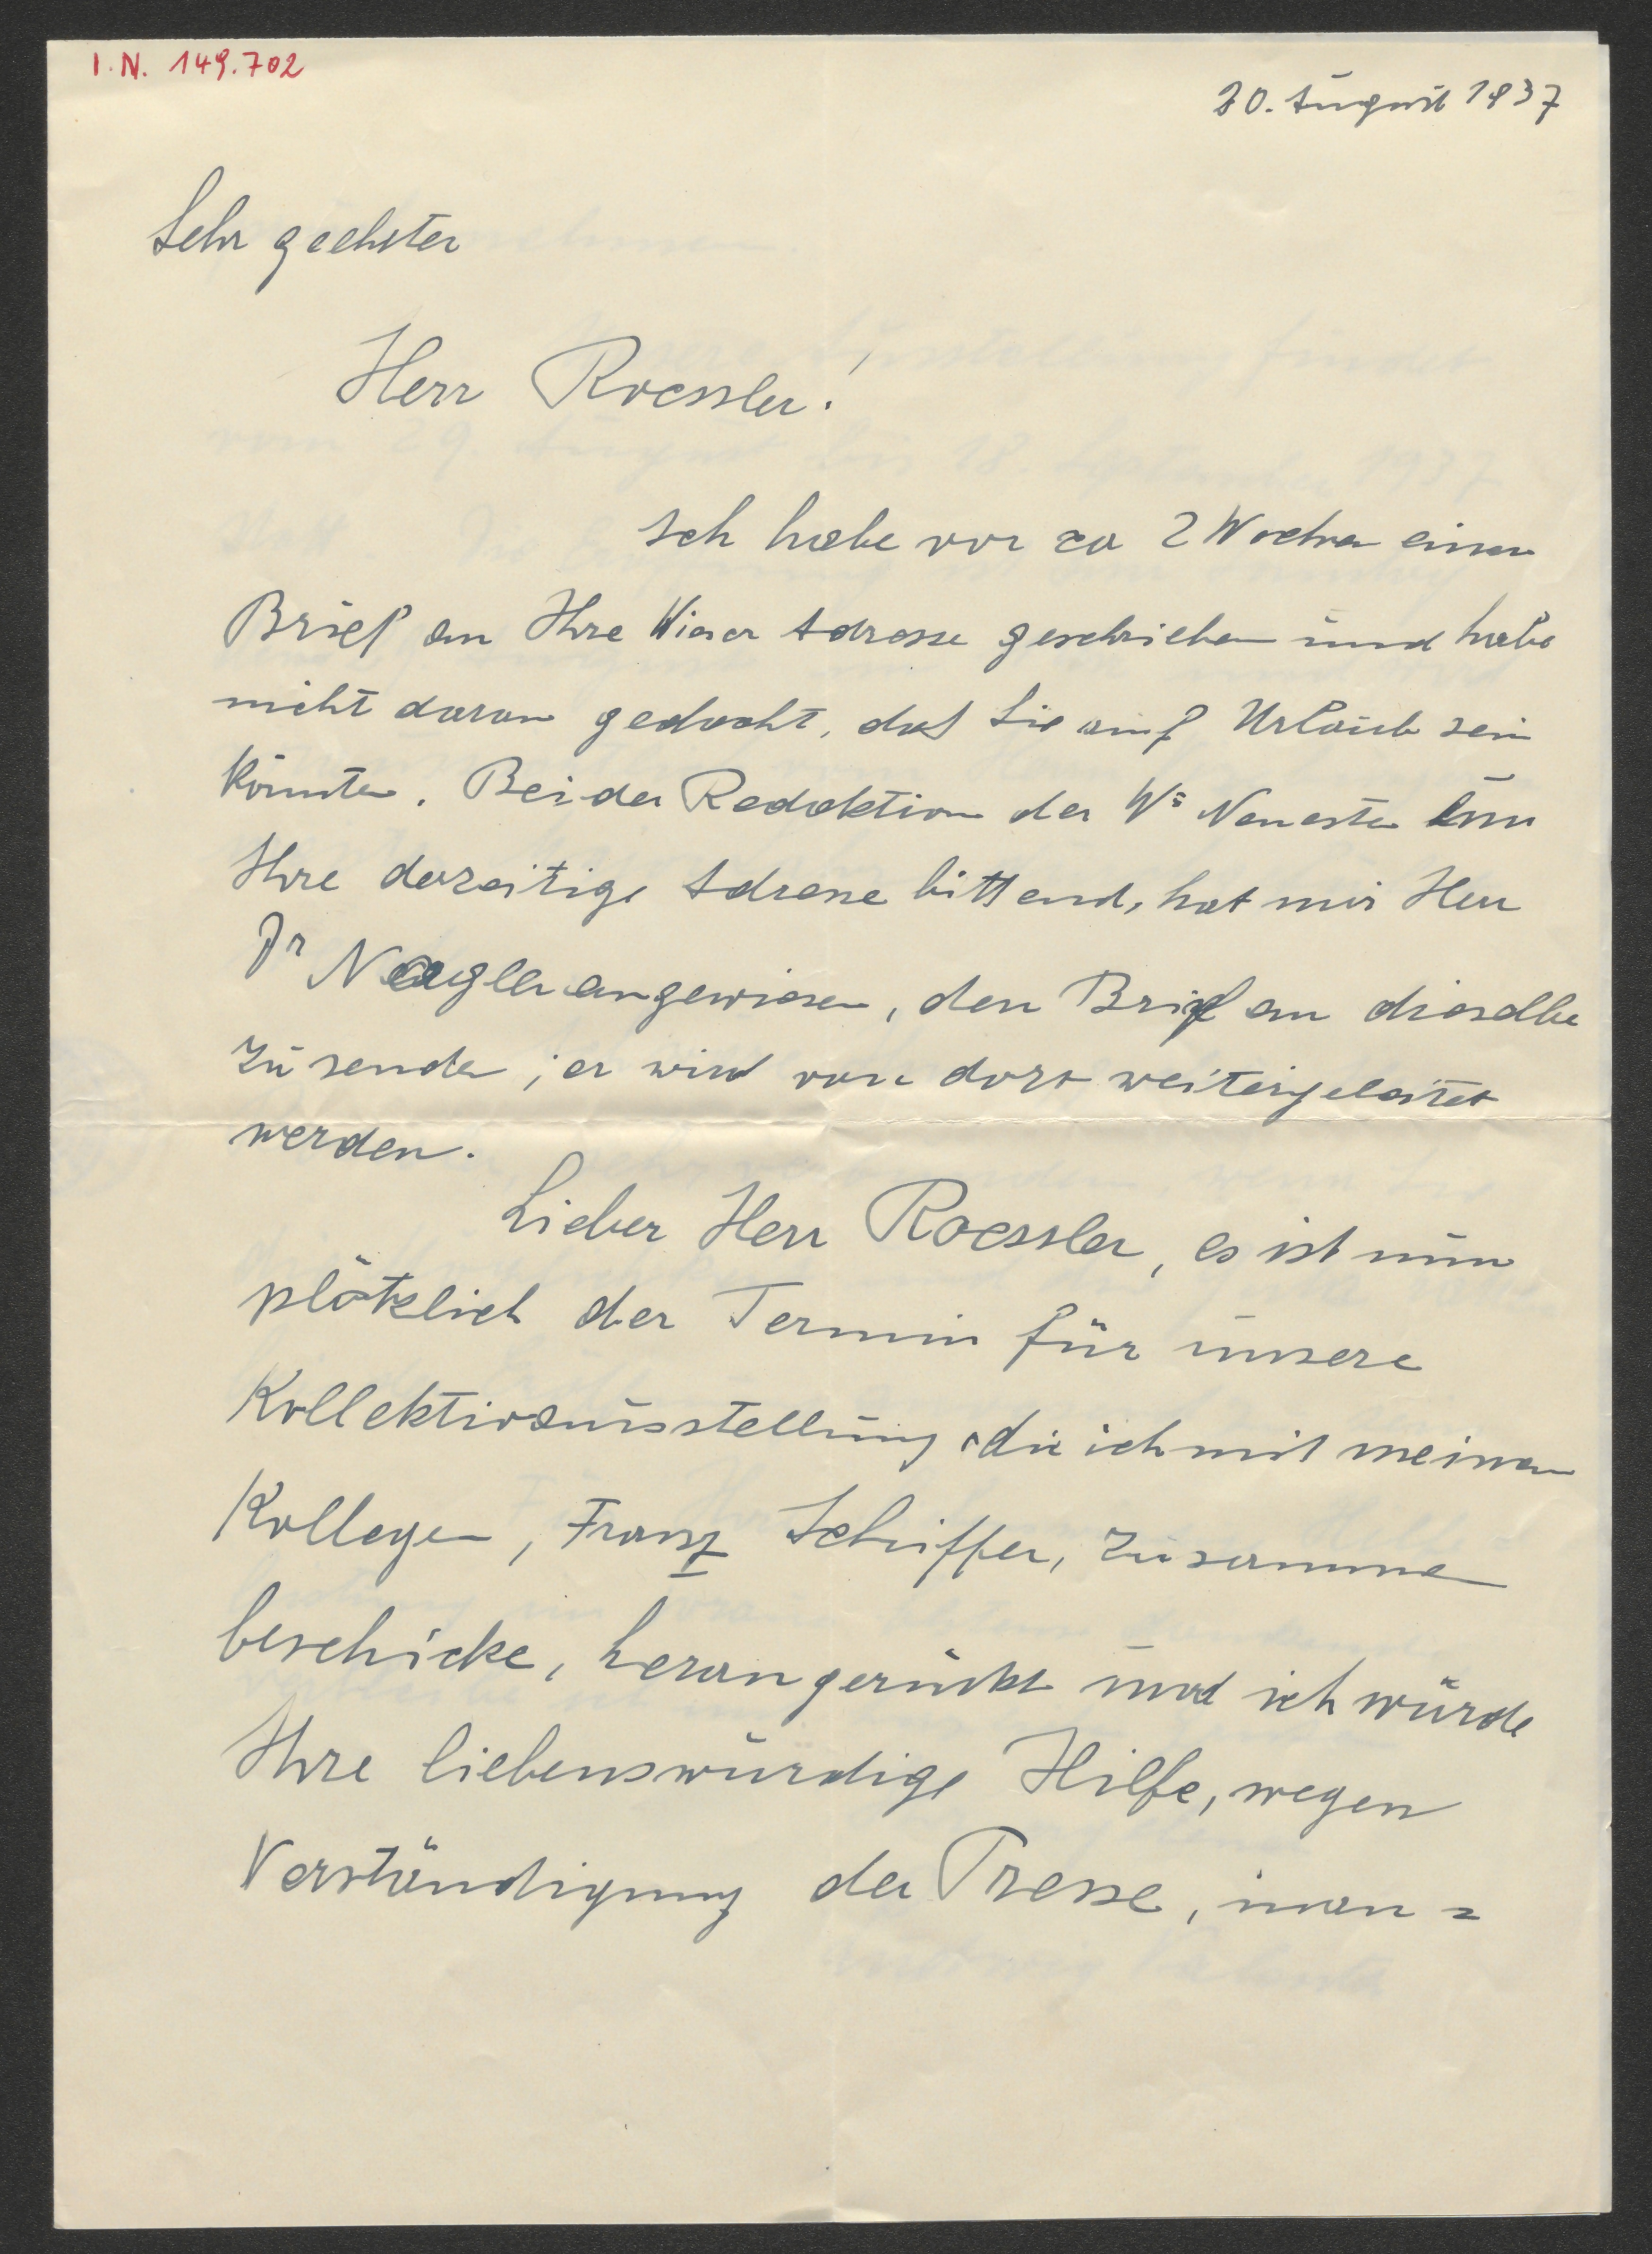 I. N. 149.702
20. August 1937
Sehr geehrter
Herr Roessler!
Ich habe vor ca 2 Wochen einen
Brief an Ihre Wiener Adresse geschrieben und habe
nicht daran gedacht, daß Sie auf Urlaub sein
könnten. Bei der Redaktion der Wr Neuesten um
Ihre derzeitige Adresse bittend, hat mir Herr
Dr Nagler angewiesen, den Brief an dieselbe
zu senden; er wird von dort weitergeleitet
werden.
Lieber Herr Roessler, es ist nun
plötzlich der Termin für unsere
Kollektivausstellung, die ich mit meinem
Kollegen, Franz Schiffer, zusammen
beschicke, herangerückt und ich würde
Ihre liebenswürdige Hilfe, wegen
Verständigung der Presse, in an =